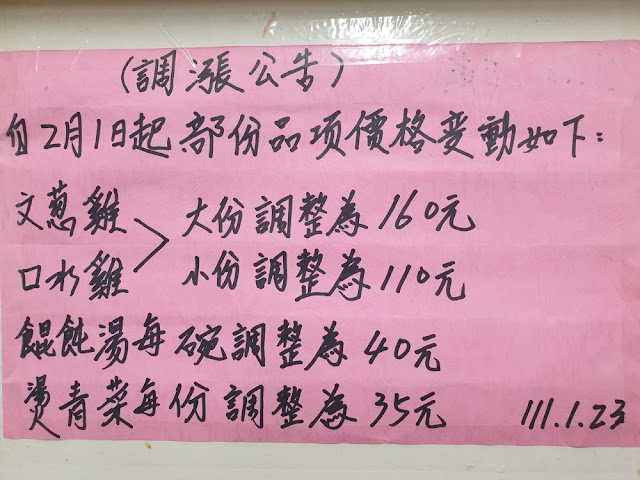 (調漲公告)
自2月1日起部份品项價格变動如下:
文蔥雞 > 大份調整為160元
口水雞 小份調整為110元
餛飩湯每碗調整為40元
燙青菜每份調整為35元 111.1.23